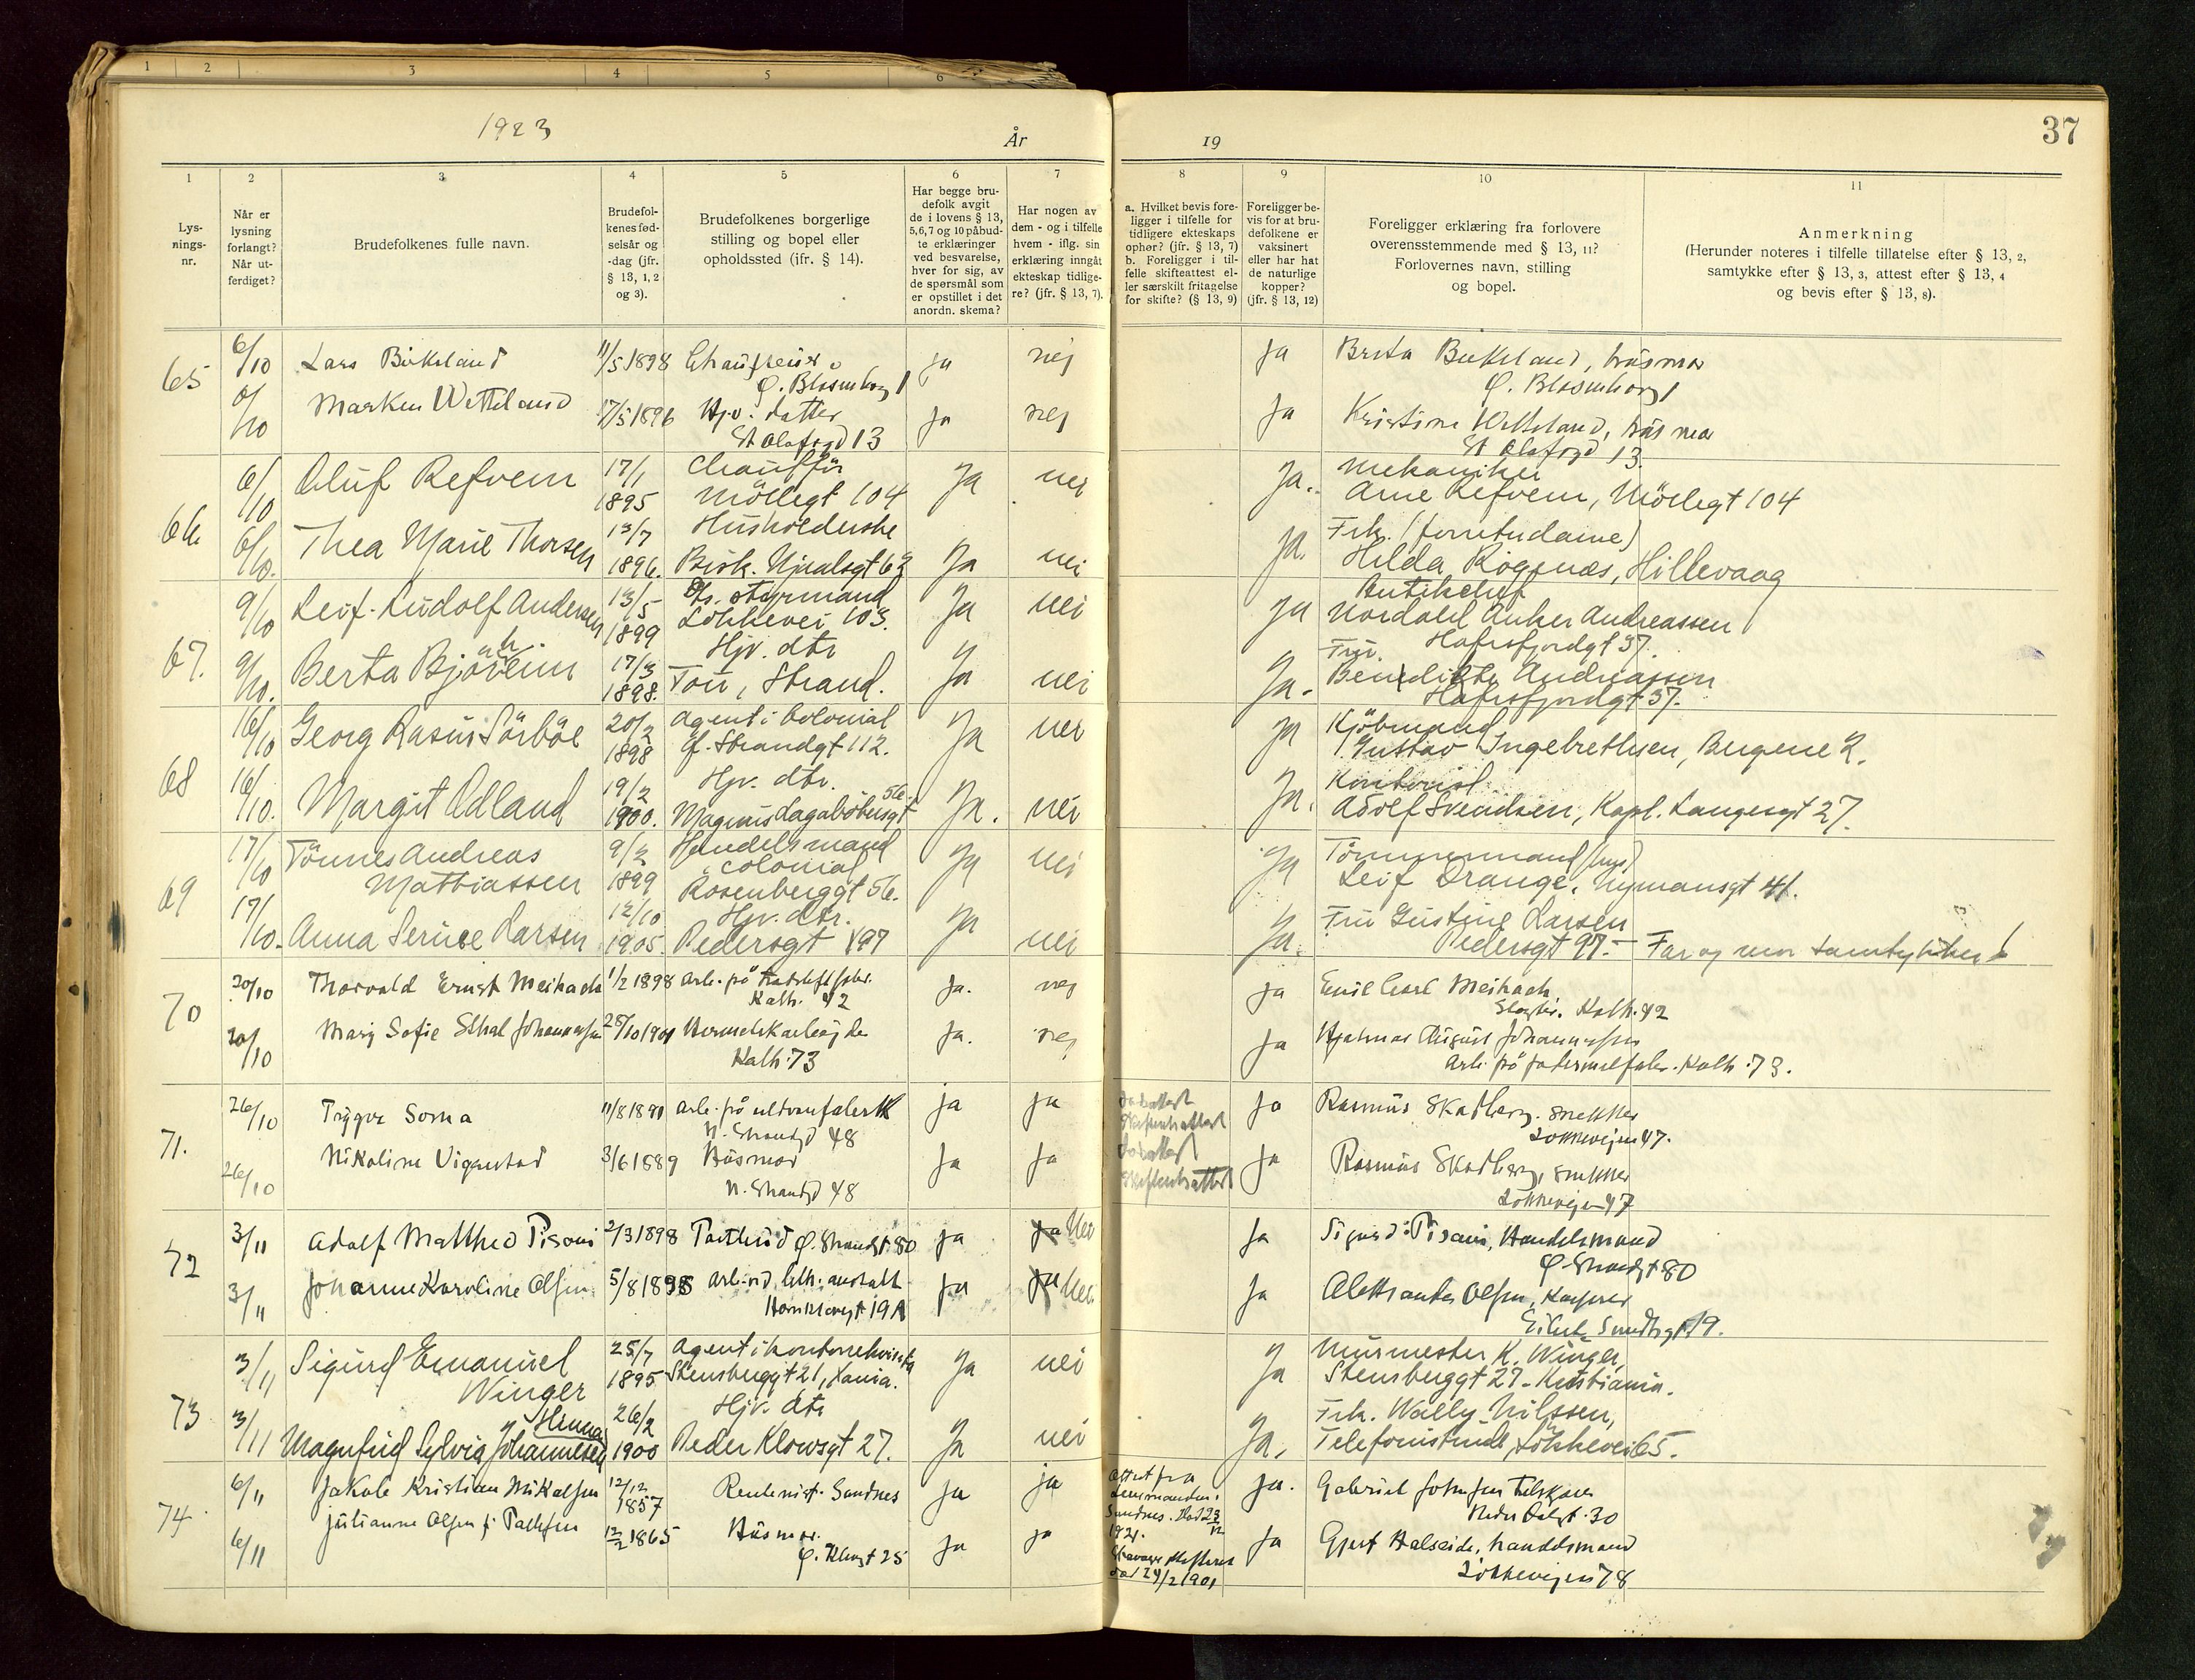 1 2 3 4 5 6
1923
År
19
37
1 2 3 4 5 6 7 8 9 10 11
Lys-
nings-
nr.
Når er
lysning
forlangt?
Når ut-
ferdiget?
Brudefolkenes fulle navn.
Brudefol-
kenes fød-
selsår og
-dag (jfr.
§ 13, 1, 2
og 3).
Brudefolkenes borgerlige
stilling og bopel eller
opholdssted (jfr. § 14).
Har begge bru-
defolk avgit
de i lovens § 13,
5, 6, 7 og 10 påbud-
te erklæringer
ved besvarelse,
hver for sig, av
de spørsmål som
er opstillet i det
anordn. skema?
Har nogen av
dem - og i tilfelle
hvem - iflg. sin
erklæring inngåt
ekteskap tidlige-
re? (jfr. § 13, 7).
a. Hvilket bevis fore-
ligger i tilfelle for
tidligere ekteskaps
ophør? (jfr. § 13, 7)
b. Foreligger i til-
felle skifteattest el-
ler særskilt fritagelse
for skifte? (§ 13, 9)
Foreligger be-
vis for at bru-
defolkene er
vaksinert
eller har hat
de naturlige
kopper?
(jfr. § 13, 12)
Foreligger erklæring fra forlovere
overensstemmende med § 13, 11?
Forlovernes navn, stilling
og bopel.
Anmerkning
(Herunder noteres i tilfelle tillatelse efter § 13, 2,
samtykke efter § 13, 3, attest efter § 13, 4
og bevis efter § 13, 8).
65
6/10 Lars Birkeland 11/5 1898 Chauffeur ja nej ja Brita Birkeland, husmor
Ø. Blaasenborg 1 Ø. Blaasenborg 1
6/10 Marken Wetteland 17/5 1896 Hjv. datter ja nej ja Kristine Wetteland, husmor
St Olafsgd 13 St Olafsgd 13.
66
6/10 Oluf Refvem 17/1 Chauffür ja nei ja. Mekaniker
1895 Möllegt 104 Arne Refvem, Möllegt 104
6/10. Thea Marie Thorsen 13/7 Husholderske ja nei ja. Frk.
1896. Bisk. Njaalsgt 62 Hilda Rogenæs, Hillevaag
67.
9/10 Leif Ludolf Andersen 13/5 Ds. styrmand ja nei ja
1899 Lökkevei 103. Nordahl Anker Andreassen
Hafrsfjordgt 37.
9/10. Berta Björeim 17/3 Hjv. dtr ja nei ja. Fru
1898. Tou, Strand. Benedikte Andreassen
Hafrsfjordgt 37.
68
16/10 Georg Rasus Sörböe 20/2 agent i Colonial ja nei ja Kjöbmand
1898 Ø. Strandgt 112. Gustav Ingebrethsen, Bergene 2.
16/10. Margit Ádland 19/2 Hjv. dtr. ja. nei ja. Kontorist
1900. Magnus Lagabötersgt 56. Adolf Svendsen, Kapl. Langesgt 27.
69
17/10 Tönnes Andreas 9/2 Handelsmand ja nei ja Tömmermand
Mathiassen 1899 colonial Leif Orange, Nymansgt 41.
Rosenberggt 56.
17/10. Anna Serine Larsen 12/10 Hjv. dtr. ja nei ja. Fru Gustine Larsen
1905. Pedersgt 97 Pedersgt 97. - Far og mor samtykker
70
20/10 Thorvald Ernst Meihack 1/2 1898 ja. nej ja Emil Carl Meihach
Kalh. 42 Slagter. Kalh. 42
20/10 Marij Sofie Ethel Johannessen 28/10 1901 Hermetikarbejder ja. nej ja Hjalmar August Johannessen
Kalh. 73 Kalh. 73.
71.
26/10 Trygve Soma ja ja ja Rasmus Skadberg. snekker
N. Strandgd 48 Løkkevejen 47.
26/10 Nikoline Vigrestad 3/6 1889 Husmor ja ja ja Rasmus Skadberg, snekker
N. Strandgd 48 Løkkevejen 47
72
3/11 Adolf Mattheo Pisani 2/3 1898 Postbud Ø. Strandgt 80 ja ja Nei ja Sigurd Pisani, Handelsmand
Ø. Strandgt 80
3/11 Johanne Karoline Olsen 5/8 1898 arb. ved lith. anstalt ja ja Nei ja Aleksander Olsen,
19A Eilert Sundtsgt 19.
73
3/11 Sigurd Emanuel 25/7 agent i kontorrekvisita ja nei ja Murmester K. Winger,
Winger 1895 Stensberggt 21, Xania. Stensberggt 27 - Kristiania.
3/11 Magnfrid Sylvia Johannesen 26/2 Hjv. dtr ja nei ja. Frk. Wally Nilssen,
1900 Peder Klowsgt 27. Telefonistinde, Lökkevei 65.
74
6/11 Jakob Kristian Mikalsen 12/12 Rentenist. Sandnes ja ja Attest fra ja. Gabriel Johnsen
1857 Sandnes. 30
6/11 Julianne Olsen f. Pallesen 12/2 1865 Husmor. ja ja ja Gjert Halseide, handelsmand
Ø. 25 Løkkevejen 78